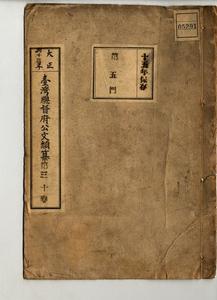 05291
十五年保存
第五門
大正
臺灣總督府公文類纂第三十卷